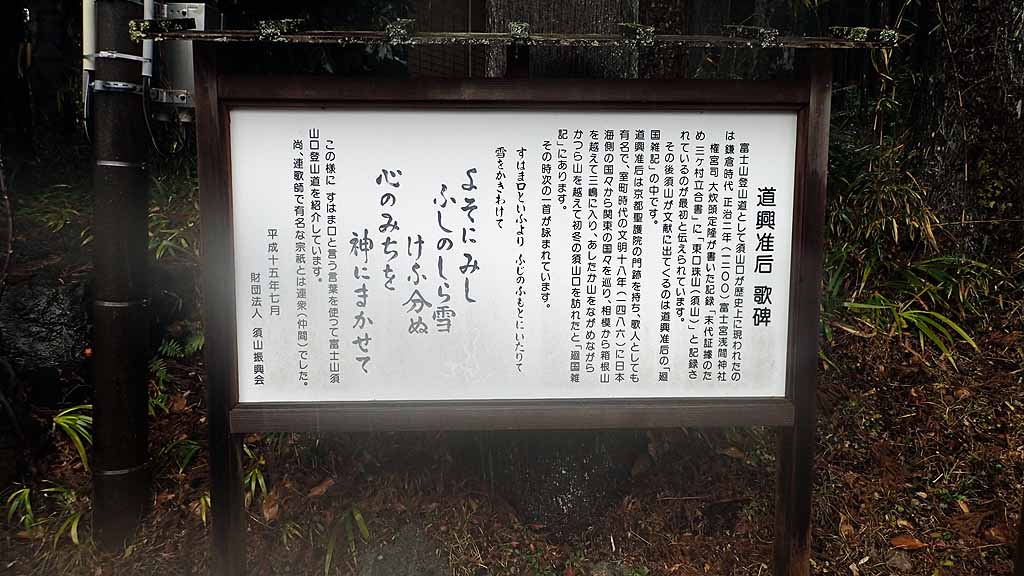 道興准后 歌碑
富士山登山道として須山口が歴史上に現われたの
は鎌倉時代 正治二年（一二〇〇）富士宮浅間神社
権宮司 大炊頭定隆が書いた記録「末代証據のた
め三ケ村立合書」に、「東口珠山（須山）」と記録さ
れているのが最初と伝えられています。
その後須山が文献に出てくるのは道興准后の「廻
国雑記」の中です。
道興准后は京都聖護院の門跡を持ち、歌人としても
有名で、室町時代の文明十八年（一四八六）に日本
海側の国々から関東の国々を巡り、相模から箱根山
を越えて三嶋に入り、あしたか山をながめながら
かつら山を越えて初冬の須山口を訪れたと「廻国雑
記」にあります。
その時次の一首が詠まれています。
すはま口といふより ふじのふもとにいたりて
雪をかきわけて
よそにみし
ふしのしら雪
けふ分ぬ
心のみちを
神にまかせて
この様に すはま口と言う言葉を使つて富士山須
山口登山道を紹介しています。
尚、連歌師で有名な宗祇とは連衆（仲間）でした。
平成十五年七月
財団法人 須山振興会